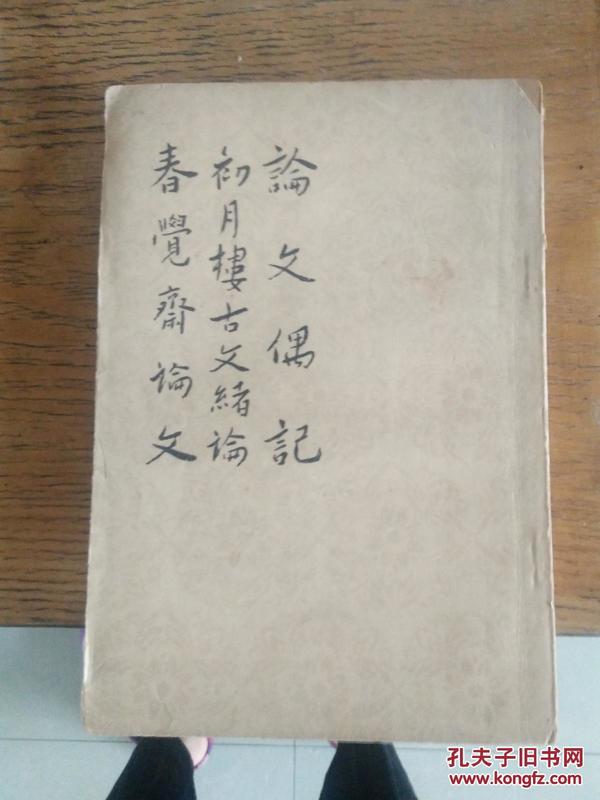 論文偶記
初月樓古文緒論
春覺齋論文
孔夫子旧书网
www.kongfz.com